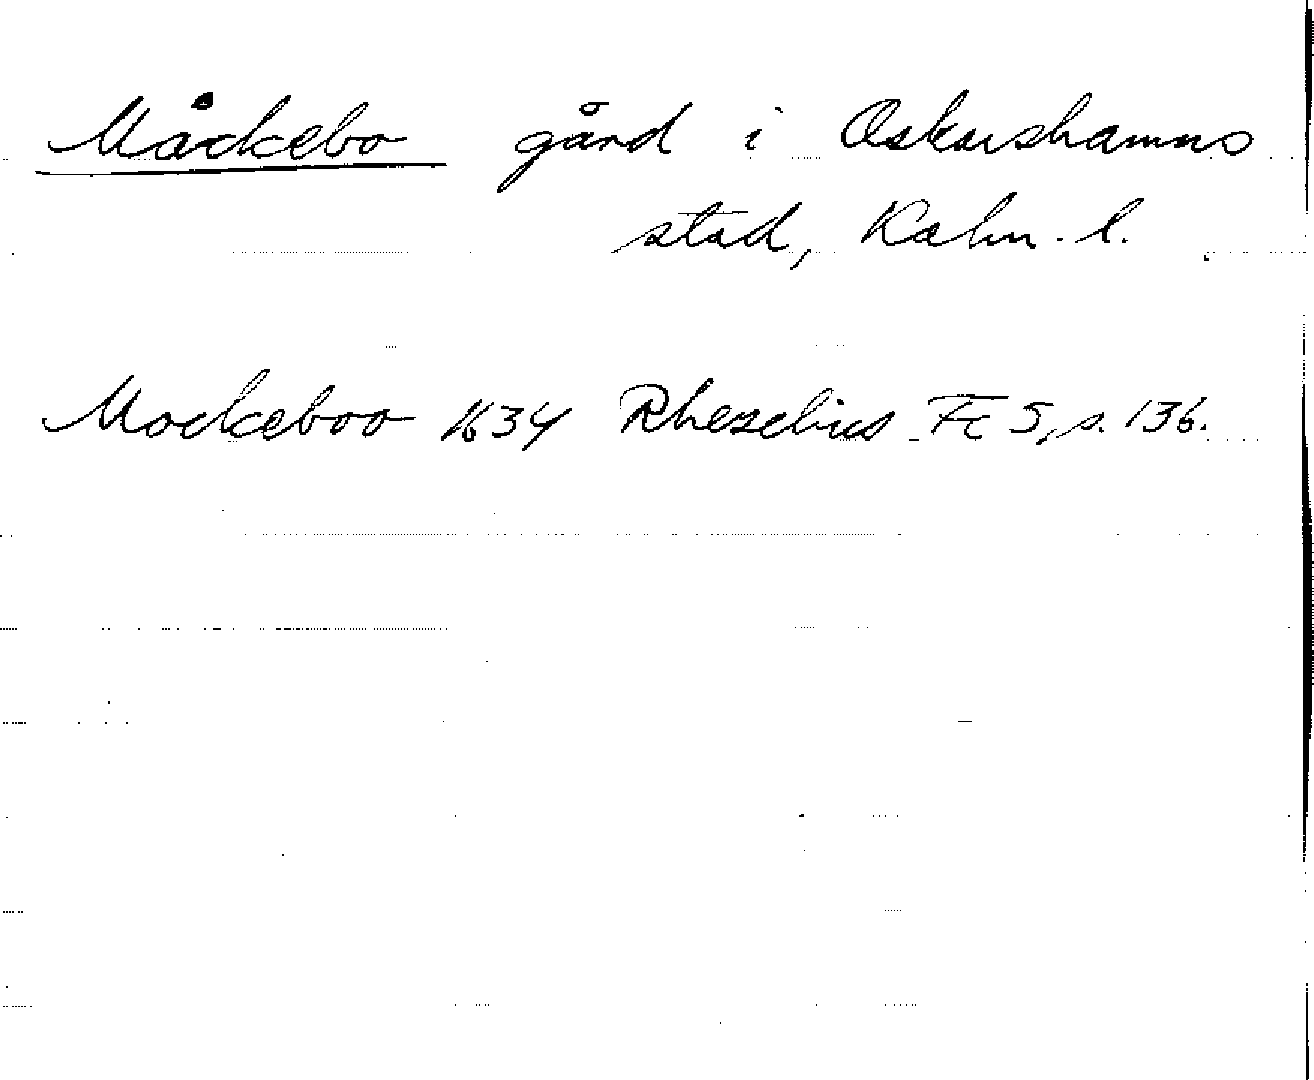 Måckebo gård i Oskarshamns
stad, Kalm. l.
Mockeboo 1634 Rhezelius Fc 5, s. 136.